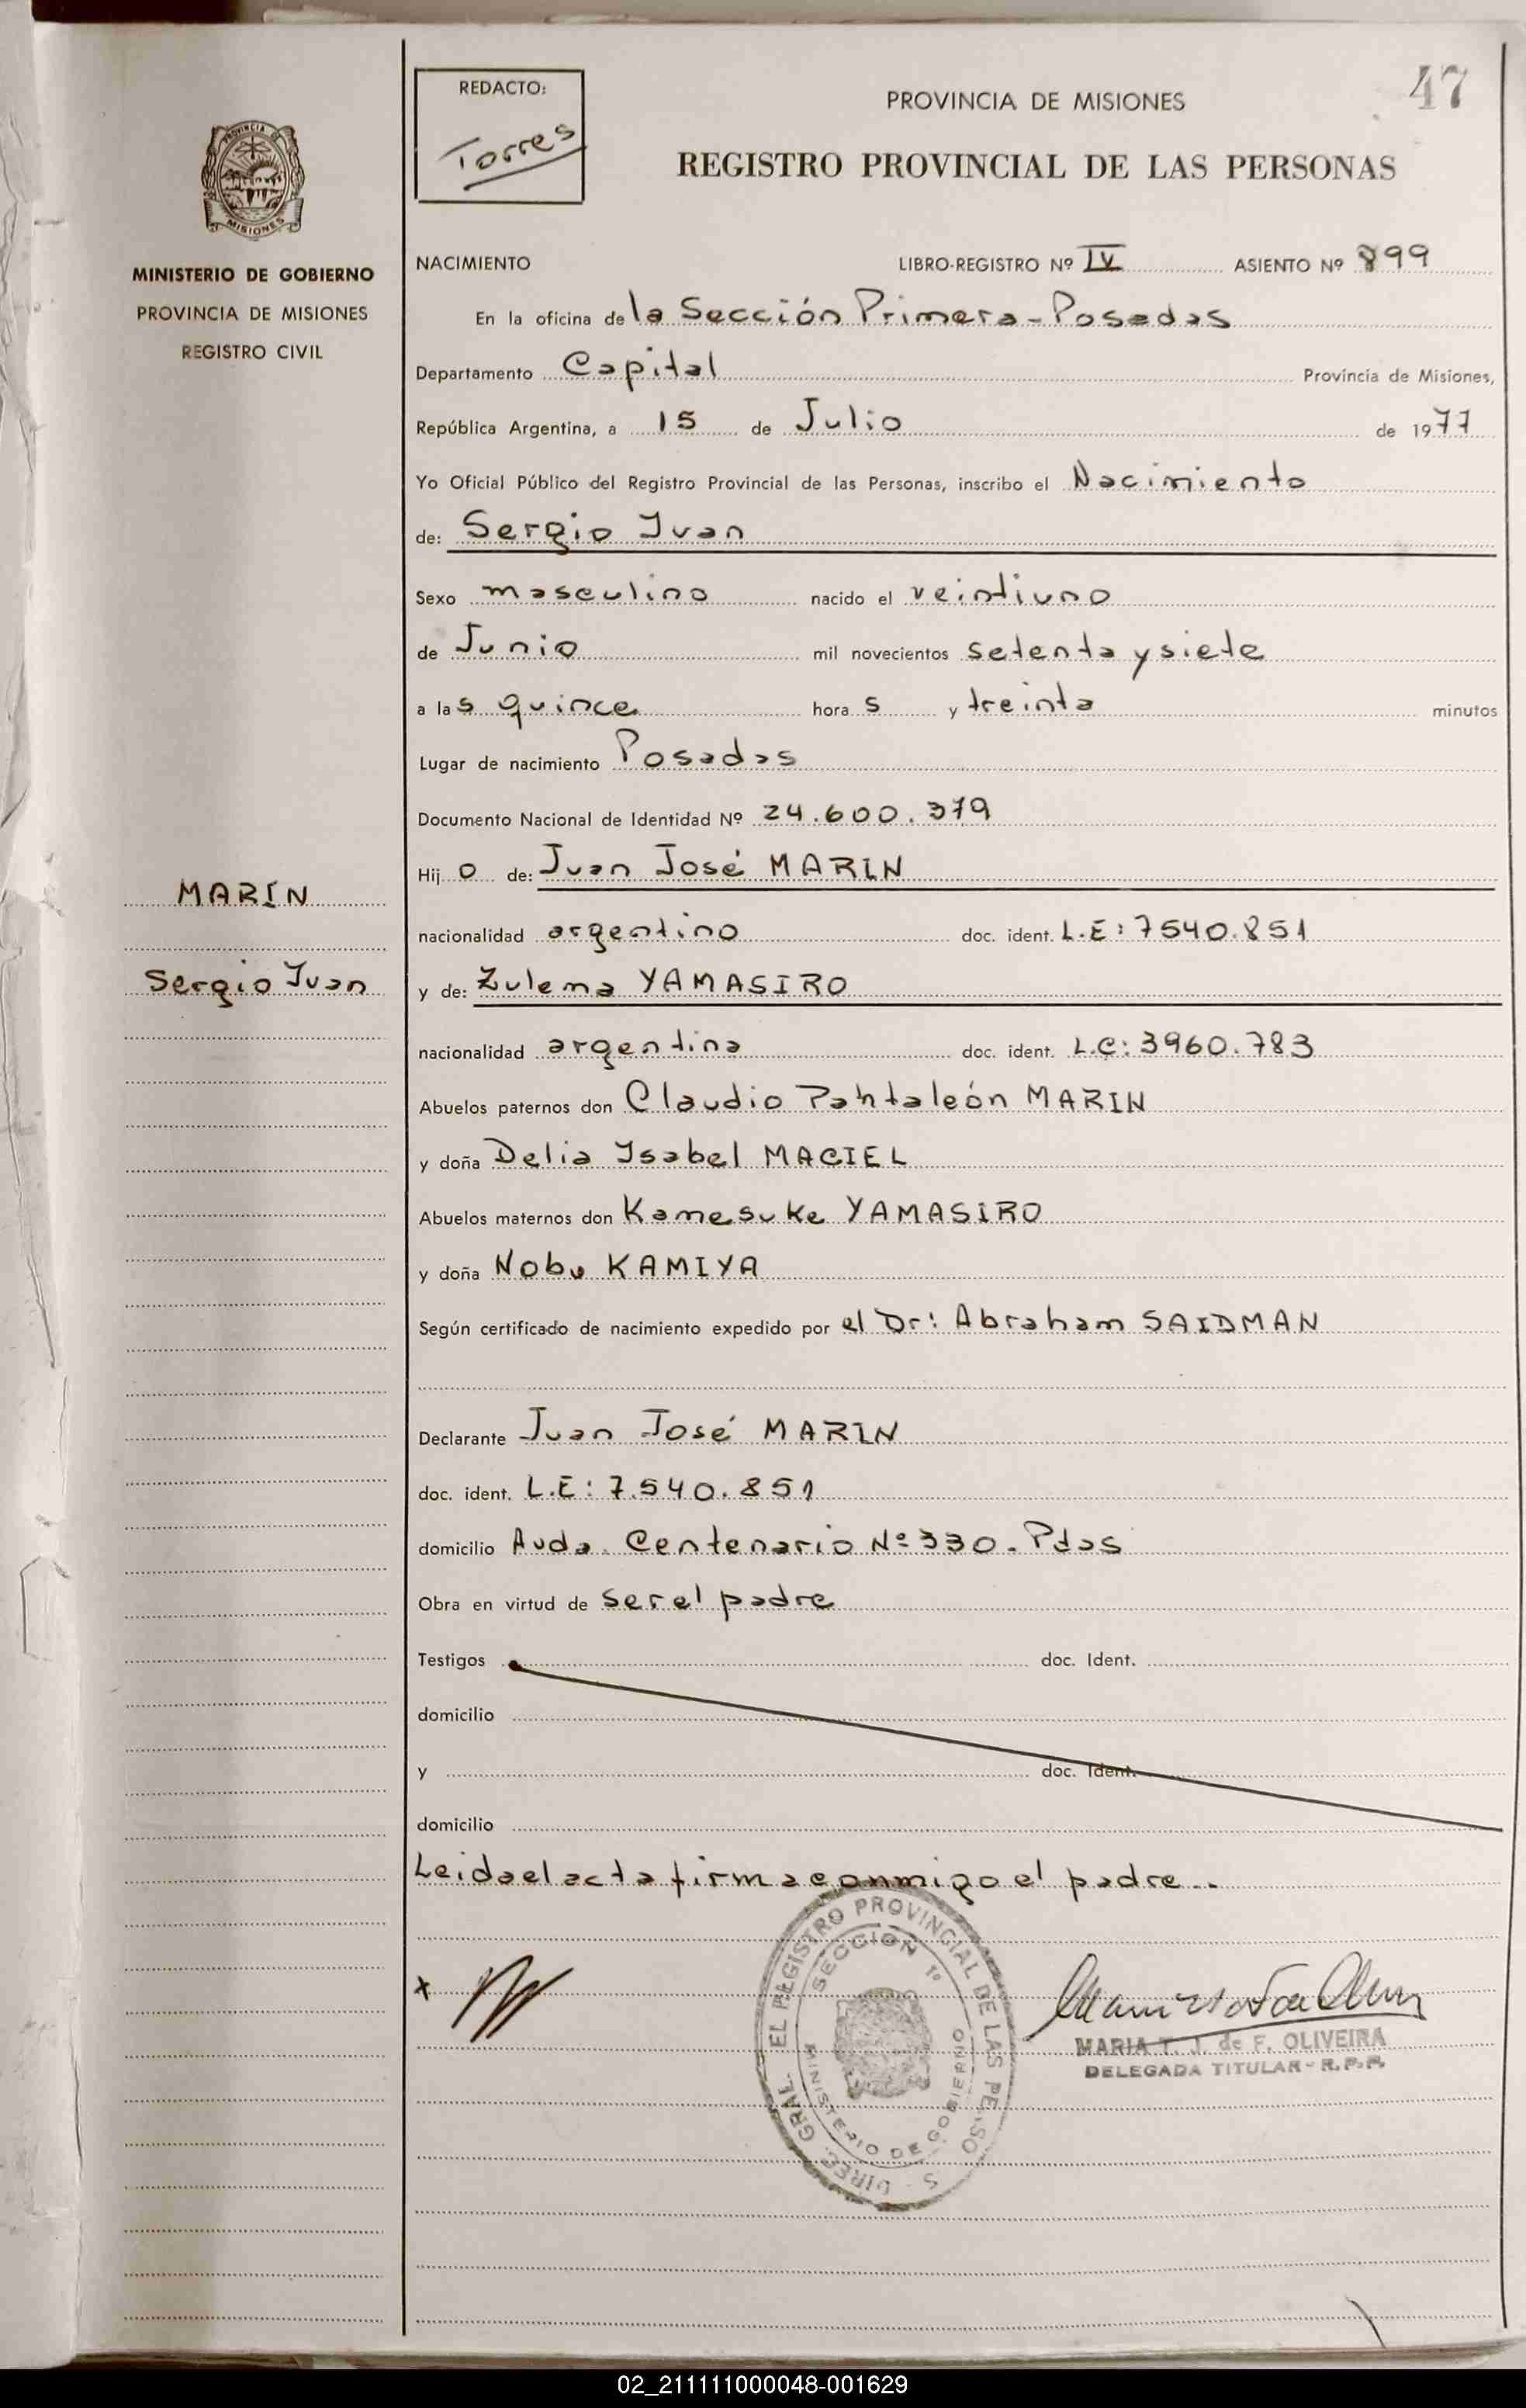 47
REDACTO:
Torres
PROVINCIA DE MISIONES
REGISTRO PROVINCIAL DE LAS PERSONAS
PROVINCIA DE
MISIONES
MINISTERIO DE GOBIERNO
PROVINCIA DE MISIONES
REGISTRO CIVIL
NACIMIENTO LIBRO-REGISTRO Nº IV ASIENTO Nº 899
En la oficina de la Sección Primera - Posadas
Departamento Capital Provincia de Misiones,
República Argentina, a 15 de Julio de 1977
Yo Oficial Público del Registro Provincial de las Personas, inscribo el Nacimiento
de: Sergio Ivan
Sexo masculino nacido el veintiuno
de Junio mil novecientos setenta y siete
a las quince horas y treinta minutos
Lugar de nacimiento Posadas
Documento Nacional de Identidad Nº 24.600.379
Hijo de: Juan José MARIN
MARIN
nacionalidad argentino doc. ident. L.E: 7540.851
Sergio Ivan
y de: Zulema YAMASIRO
nacionalidad argentina doc. ident. L.C: 3960.783
Abuelos paternos don Claudio Pantaleón MARIN
y doña Delia Isabel MACIEL
Abuelos maternos don Kamesuke YAMASIRO
y doña Nobu KAMIYA
Según certificado de nacimiento expedido por el Dr: Abraham SAIDMAN
Declarante Juan José MARIN
doc. ident. L.E: 7.540.851
domicilio Avda. Centenario Nº 330. Pdas
Obra en virtud de ser el padre
Testigos doc. Ident.
domicilio
y doc. Ident.
domicilio
Leida el acta firma conmigo el padre..
x
DIREC. GRAL. EL REGISTRO PROVINCIAL DE LAS PE SO S
SECCION 1º
MINISTERIO DE GOBIERNO
MARIA T. J. de F. OLIVEIRA
DELEGADA TITULAR - R.P.P.
02_211111000048-001629